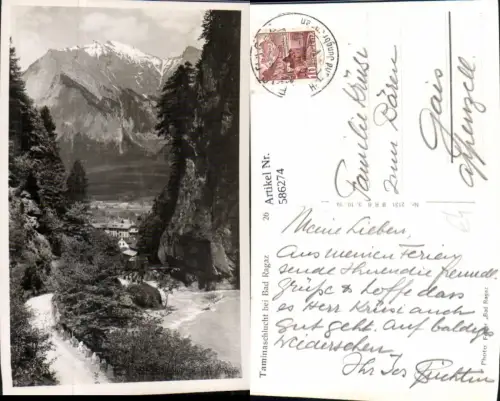 Artikel Nr.
586274
26
Taminaschlucht bei Bad Ragaz.
Photo:
Bad Ragaz
10
Familie Krüsi
zum Bären
Gais
Appenzell.
Meine Lieben,
Aus meinen Ferien
sende Ihnen die freundl.
Grüße & hoffe dass
es Herr Krüsi auch
gut geht. Auf baldiges
Wiedersehen.
Ihr Jos